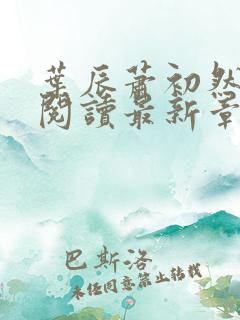 葉辰蕭初然
閱讀最新章
巴斯洛
未经同意禁止转载